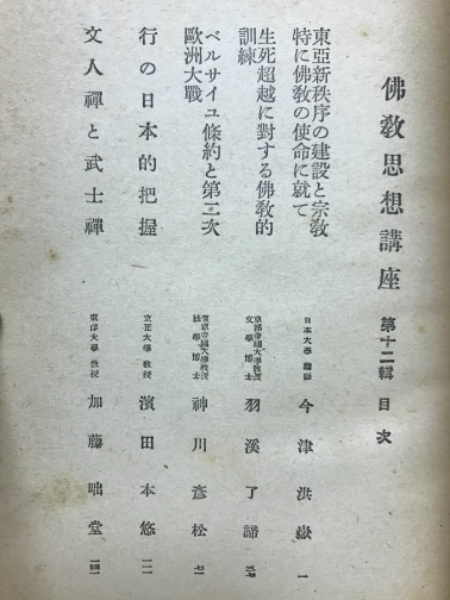 佛教思想講座 第十二輯 目次
東亞新秩序の建設と宗教
特に佛教の使命に就て
日本大學 今津洪嶽 一
生死超越に對する佛教的
訓練
京都帝國大學教授
文學博士 羽溪了諦
ベルサイユ條約と第二次
歐洲大戰
東京帝國大學教授
法學博士 神川彦松
行の日本的把握
立正大學教授 濱田本悠
文人禪と武士禪
東洋大學教授 加藤咄堂